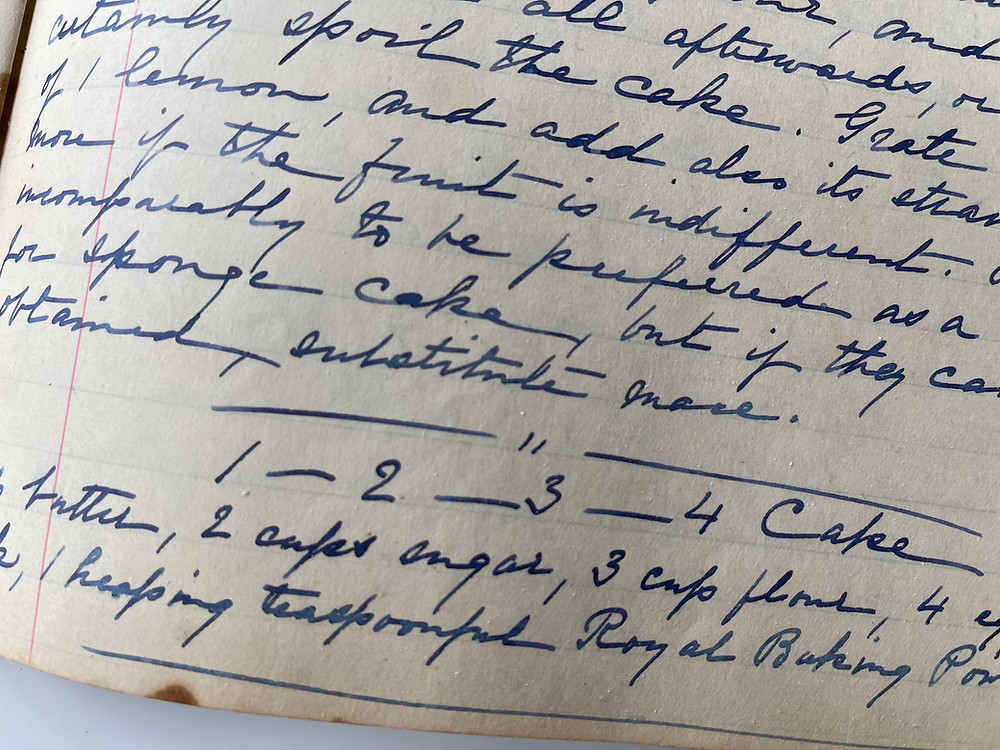 and
all afterwards, or
certainly spoil the cake. Grate
of 1 lemon, and add also its
more if the fruit is indifferent.
incomparably to be preferred as a
for sponge cake, but if they
obtained, substitute mace.
"
1 — 2 — 3 — 4 Cake
butter, 2 cups sugar, 3 cup flour, 4
1 heaping teaspoonful Royal Baking